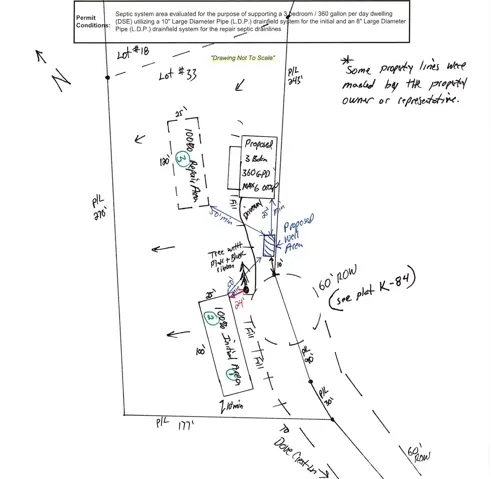 Permit Conditions:
Septic system area evaluated for the purpose of supporting a 3 bedroom / 360 gallon per day dwelling
(DSE) utilizing a 10" Large Diameter Pipe (L.D.P.) drainfield system for the initial and an 8" Large Diameter
Pipe (L.D.P.) drainfield system for the repair septic drainlines
"Drawing Not To Scale"
Lot #18
Lot #33
N
P/L
243'
* Some property lines were
marked by the property
owner or representative.
25'
120'
100% Repair Area
3
Proposed
3 Bdrm
360 GPD
MAX 6 occup
P/L
270'
Fill
Driveway
50' min
Proposed
Well
Area
Tree with
Pink + Black
ribbon
10'
60' ROW
(see plat K-84)
24'
100% Initial Area
2
1
100'
Fill
Fill
P/L
30'
P/L 177'
To
Dove Crest Ln
60'
ROW